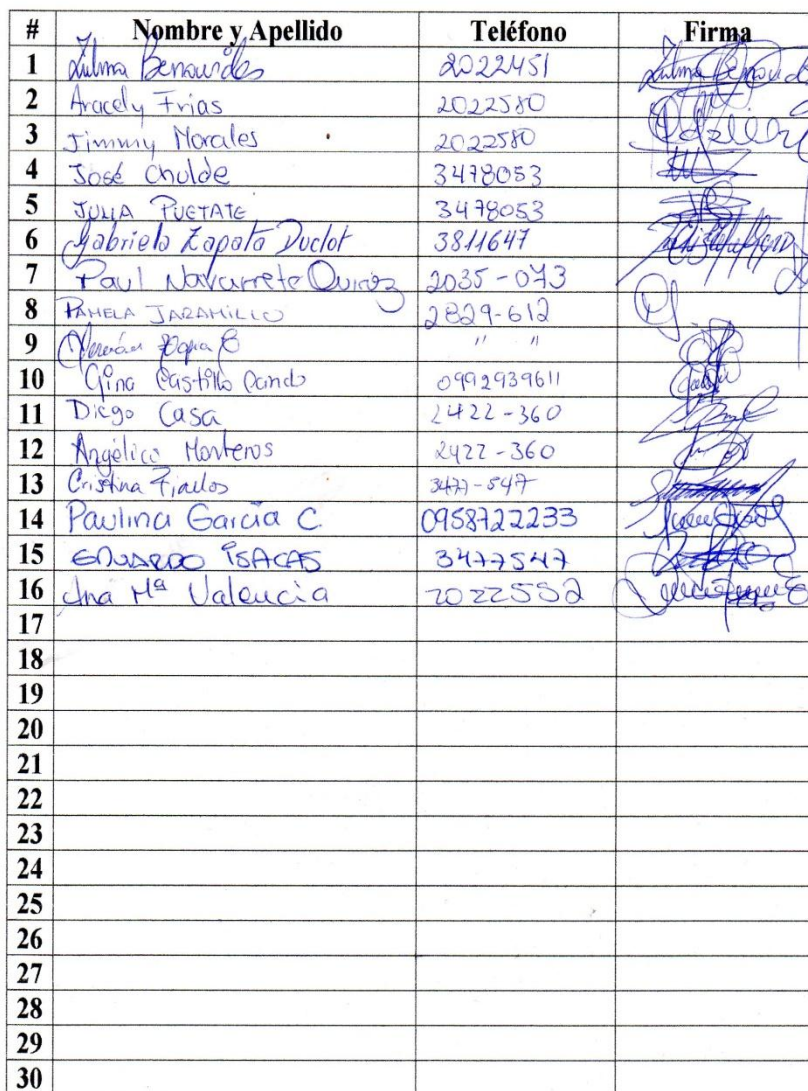 # Nombre y Apellido Teléfono Firma
1 Zulma Benavides 2022451
2 Aracely Frias 2022580
3 Jimmy Morales 2022580
4 José Chulde 3478053
5 JULIA PUETATE 3478053
6 Gabriela Zapata Duclot 3811647
7 Paul Navarrete Quiroz 2035-073
8 PAMELA JARAMILLO 2829-612
9 " "
10 Gina Castillo Pando 0992939611
11 Diego Casa 2422-360
12 Angélica Monteros 2422-360
13 Cristina Fiallos 3477-547
14 Paulina García C 0958722233
15 EDUARDO ISACAS 3477547
16 Ana Mª Valencia 2022552
17
18
19
20
21
22
23
24
25
26
27
28
29
30